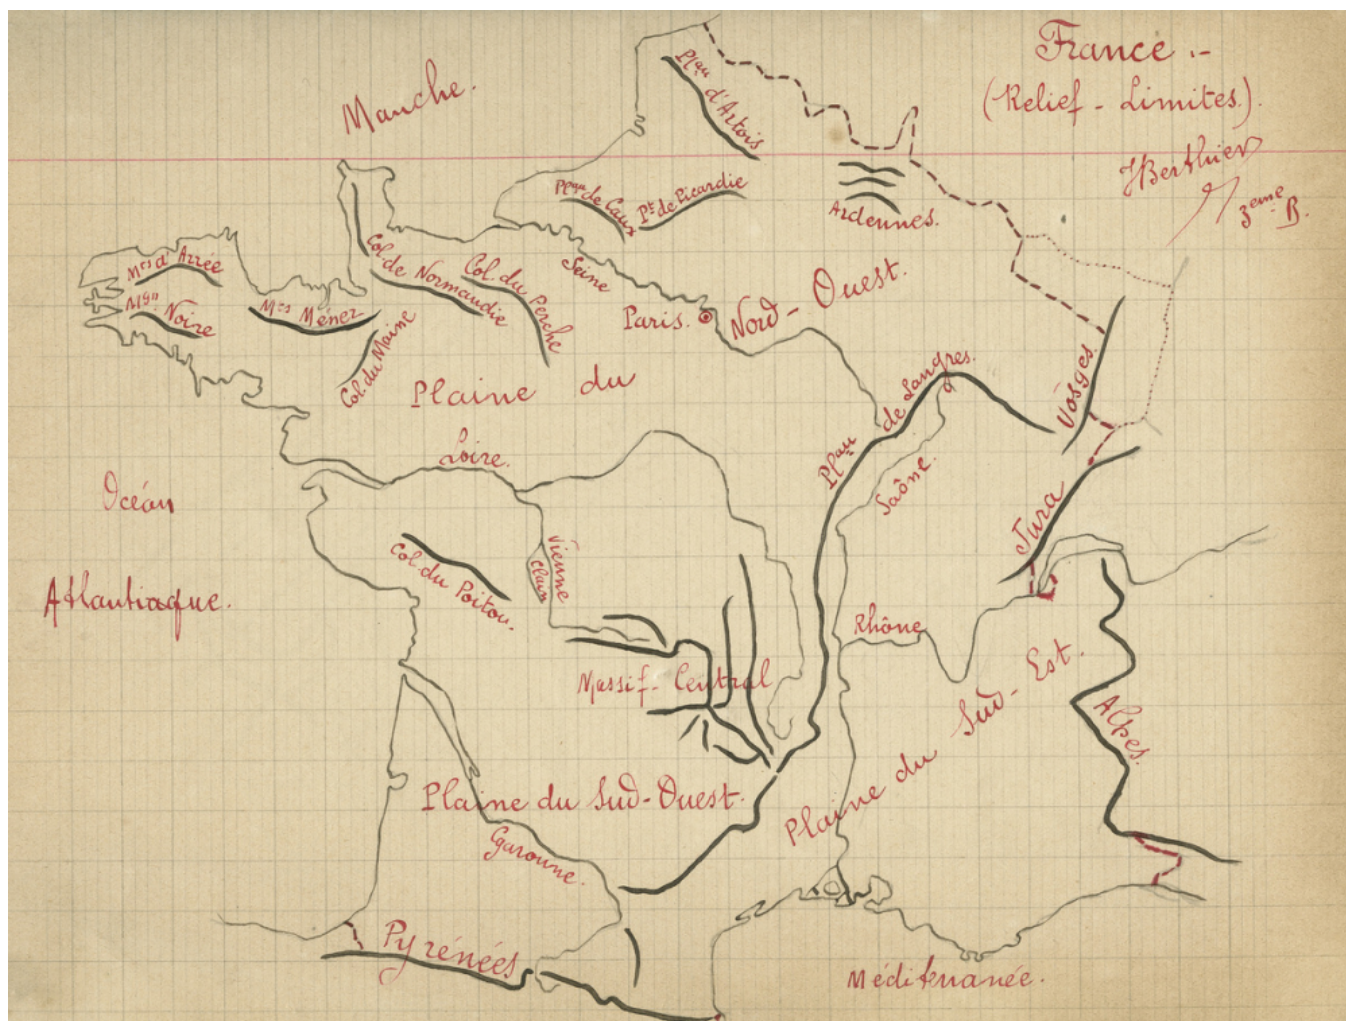 France :-
(Relief - Limites.)
JBerthier
3eme B.
Manche.
Plau d'Artois
Plau de Caux
Pt de Picardie
Ardennes.
Mts d'Arrée
Mgn Noire
Mts Ménez
Col. de Normandie
Col. du Perche
Col. du Maine
Seine
Paris.
Plaine du Nord-Ouest.
Plau de Langres.
Vosges.
Loire.
Saône.
Océan
Atlantiaque.
Jura
Col. du Poitou.
Vienne
Clain
Rhône
Massif-Central
Alpes.
Plaine du Sud-Est.
Plaine du Sud-Ouest.
Garonne.
Pyrénées
Méditerranée.